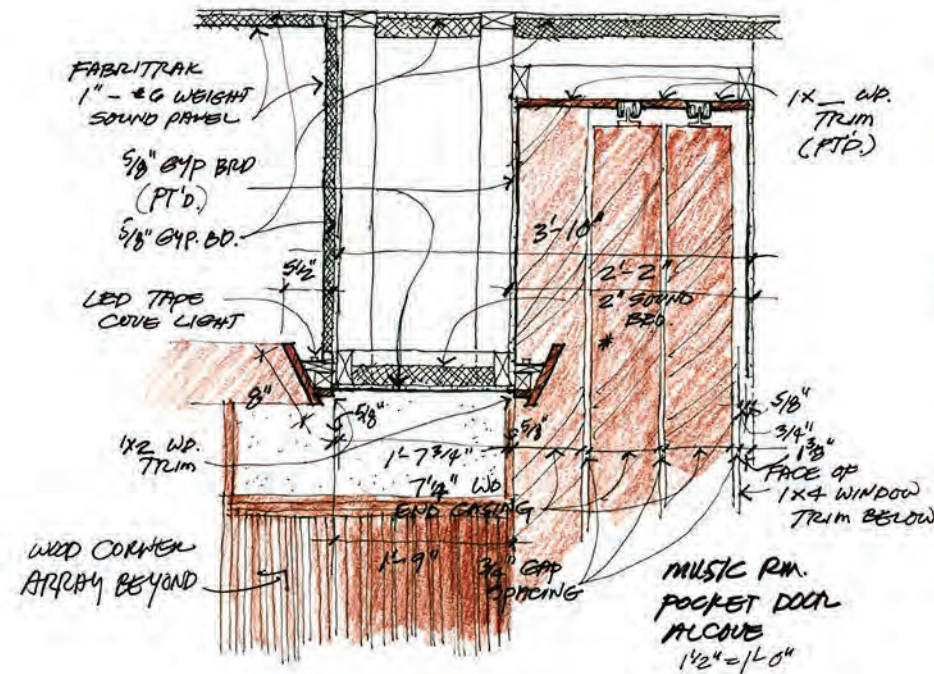 FABRITRAK
1" - #6 WEIGHT
SOUND PANEL
5/8" GYP BRD
(PT'D.)
5/8" GYP. BD.
5 1/2"
LED TAPE
COVE LIGHT
8"
1X2 WD.
TRIM
WOOD CORNER
ARRAY BEYOND
1X__ WD.
TRIM
(PT'D.)
3'-10"
2'-2"
2" SOUND
BRD.
*
5/8"
5/8"
1'-7 3/4"
7 1/4" WD
END CASING
1'-9"
3/4" GAP
SPACING
5/8"
3/4"
1 3/8"
FACE OF
1X4 WINDOW
TRIM BELOW
MUSIC RM.
POCKET DOOR
ALCOVE
1 1/2" = 1'-0"